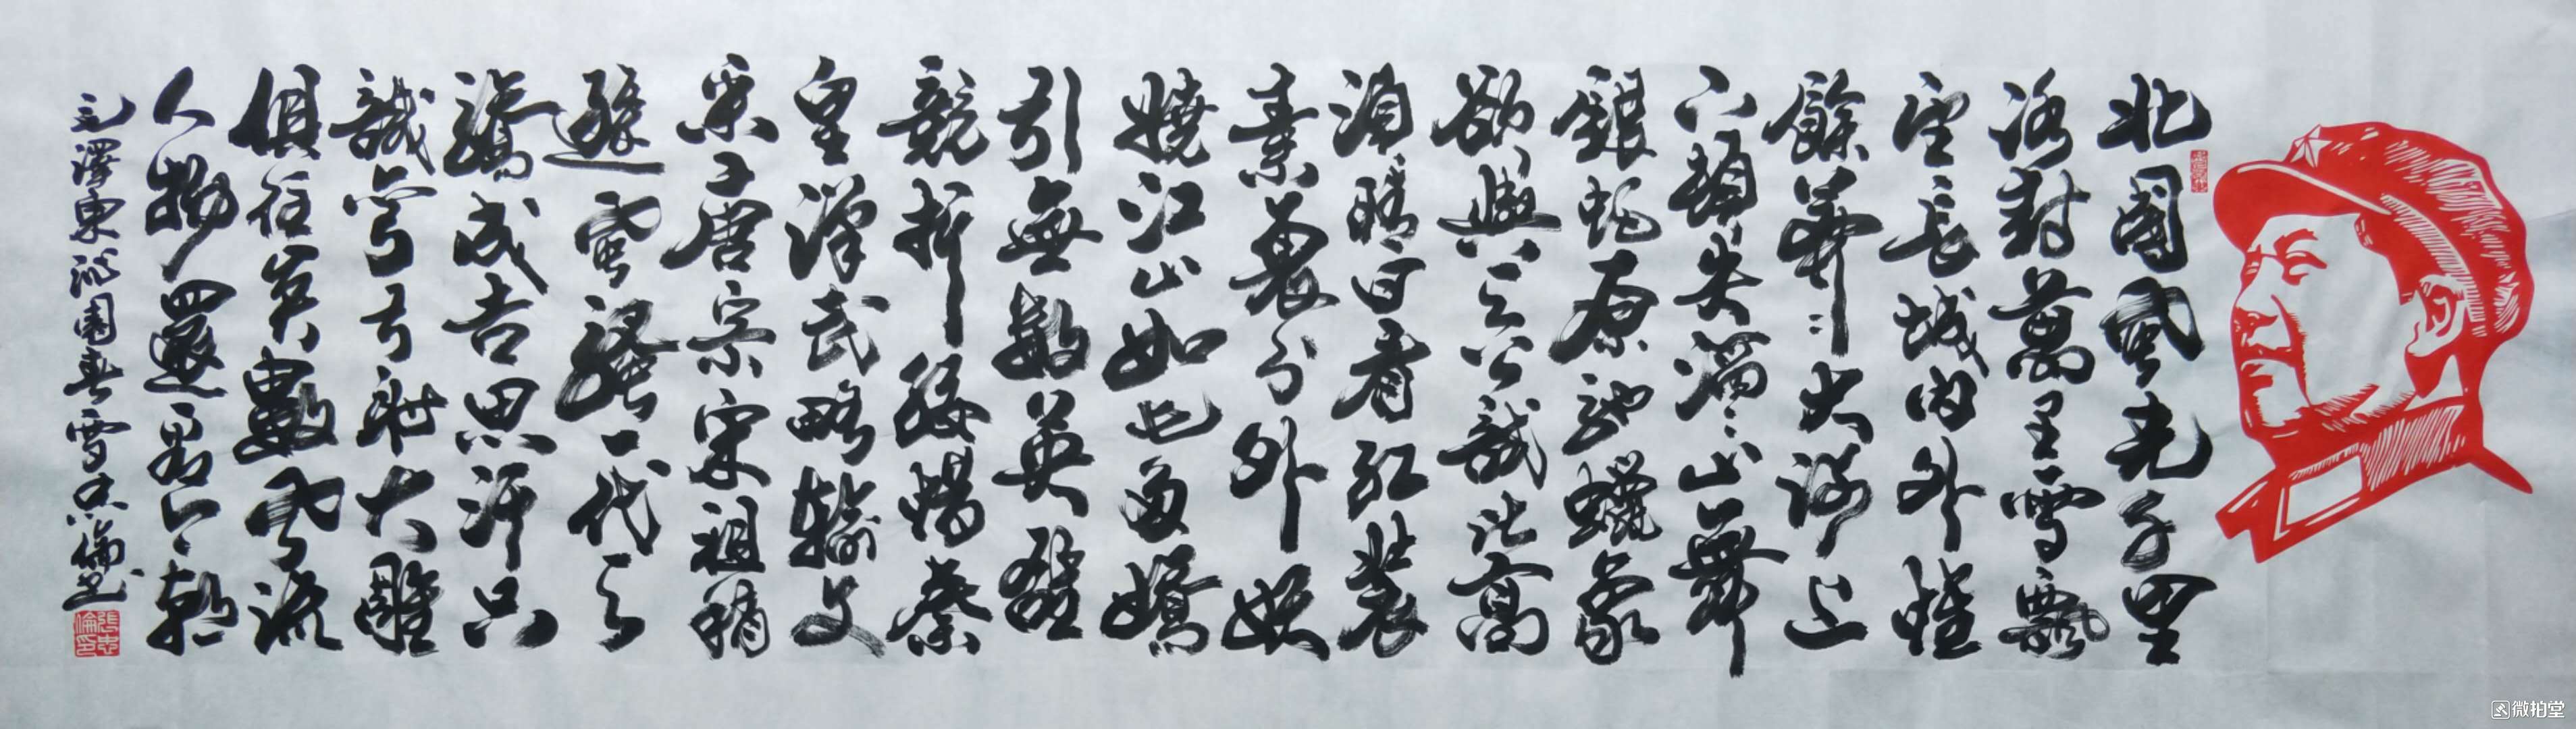 北國風光千里
冰封萬里雪飄
望長城内外惟
餘莽〻大河上
下頓失滔〻山舞
銀蛇原馳蠟象
欲與天公試比高
須晴日看紅裝
素裹分外妖
嬈江山如此多嬌
引無數英雄
競折腰惜秦
皇漢武略輸文
采唐宗宋祖稍
遜風騷一代天
驕成吉思汗只
識彎弓射大雕
俱往矣數風流
人物還看今朝
毛澤東沁園春雪忠倫書
張忠倫印
微拍堂